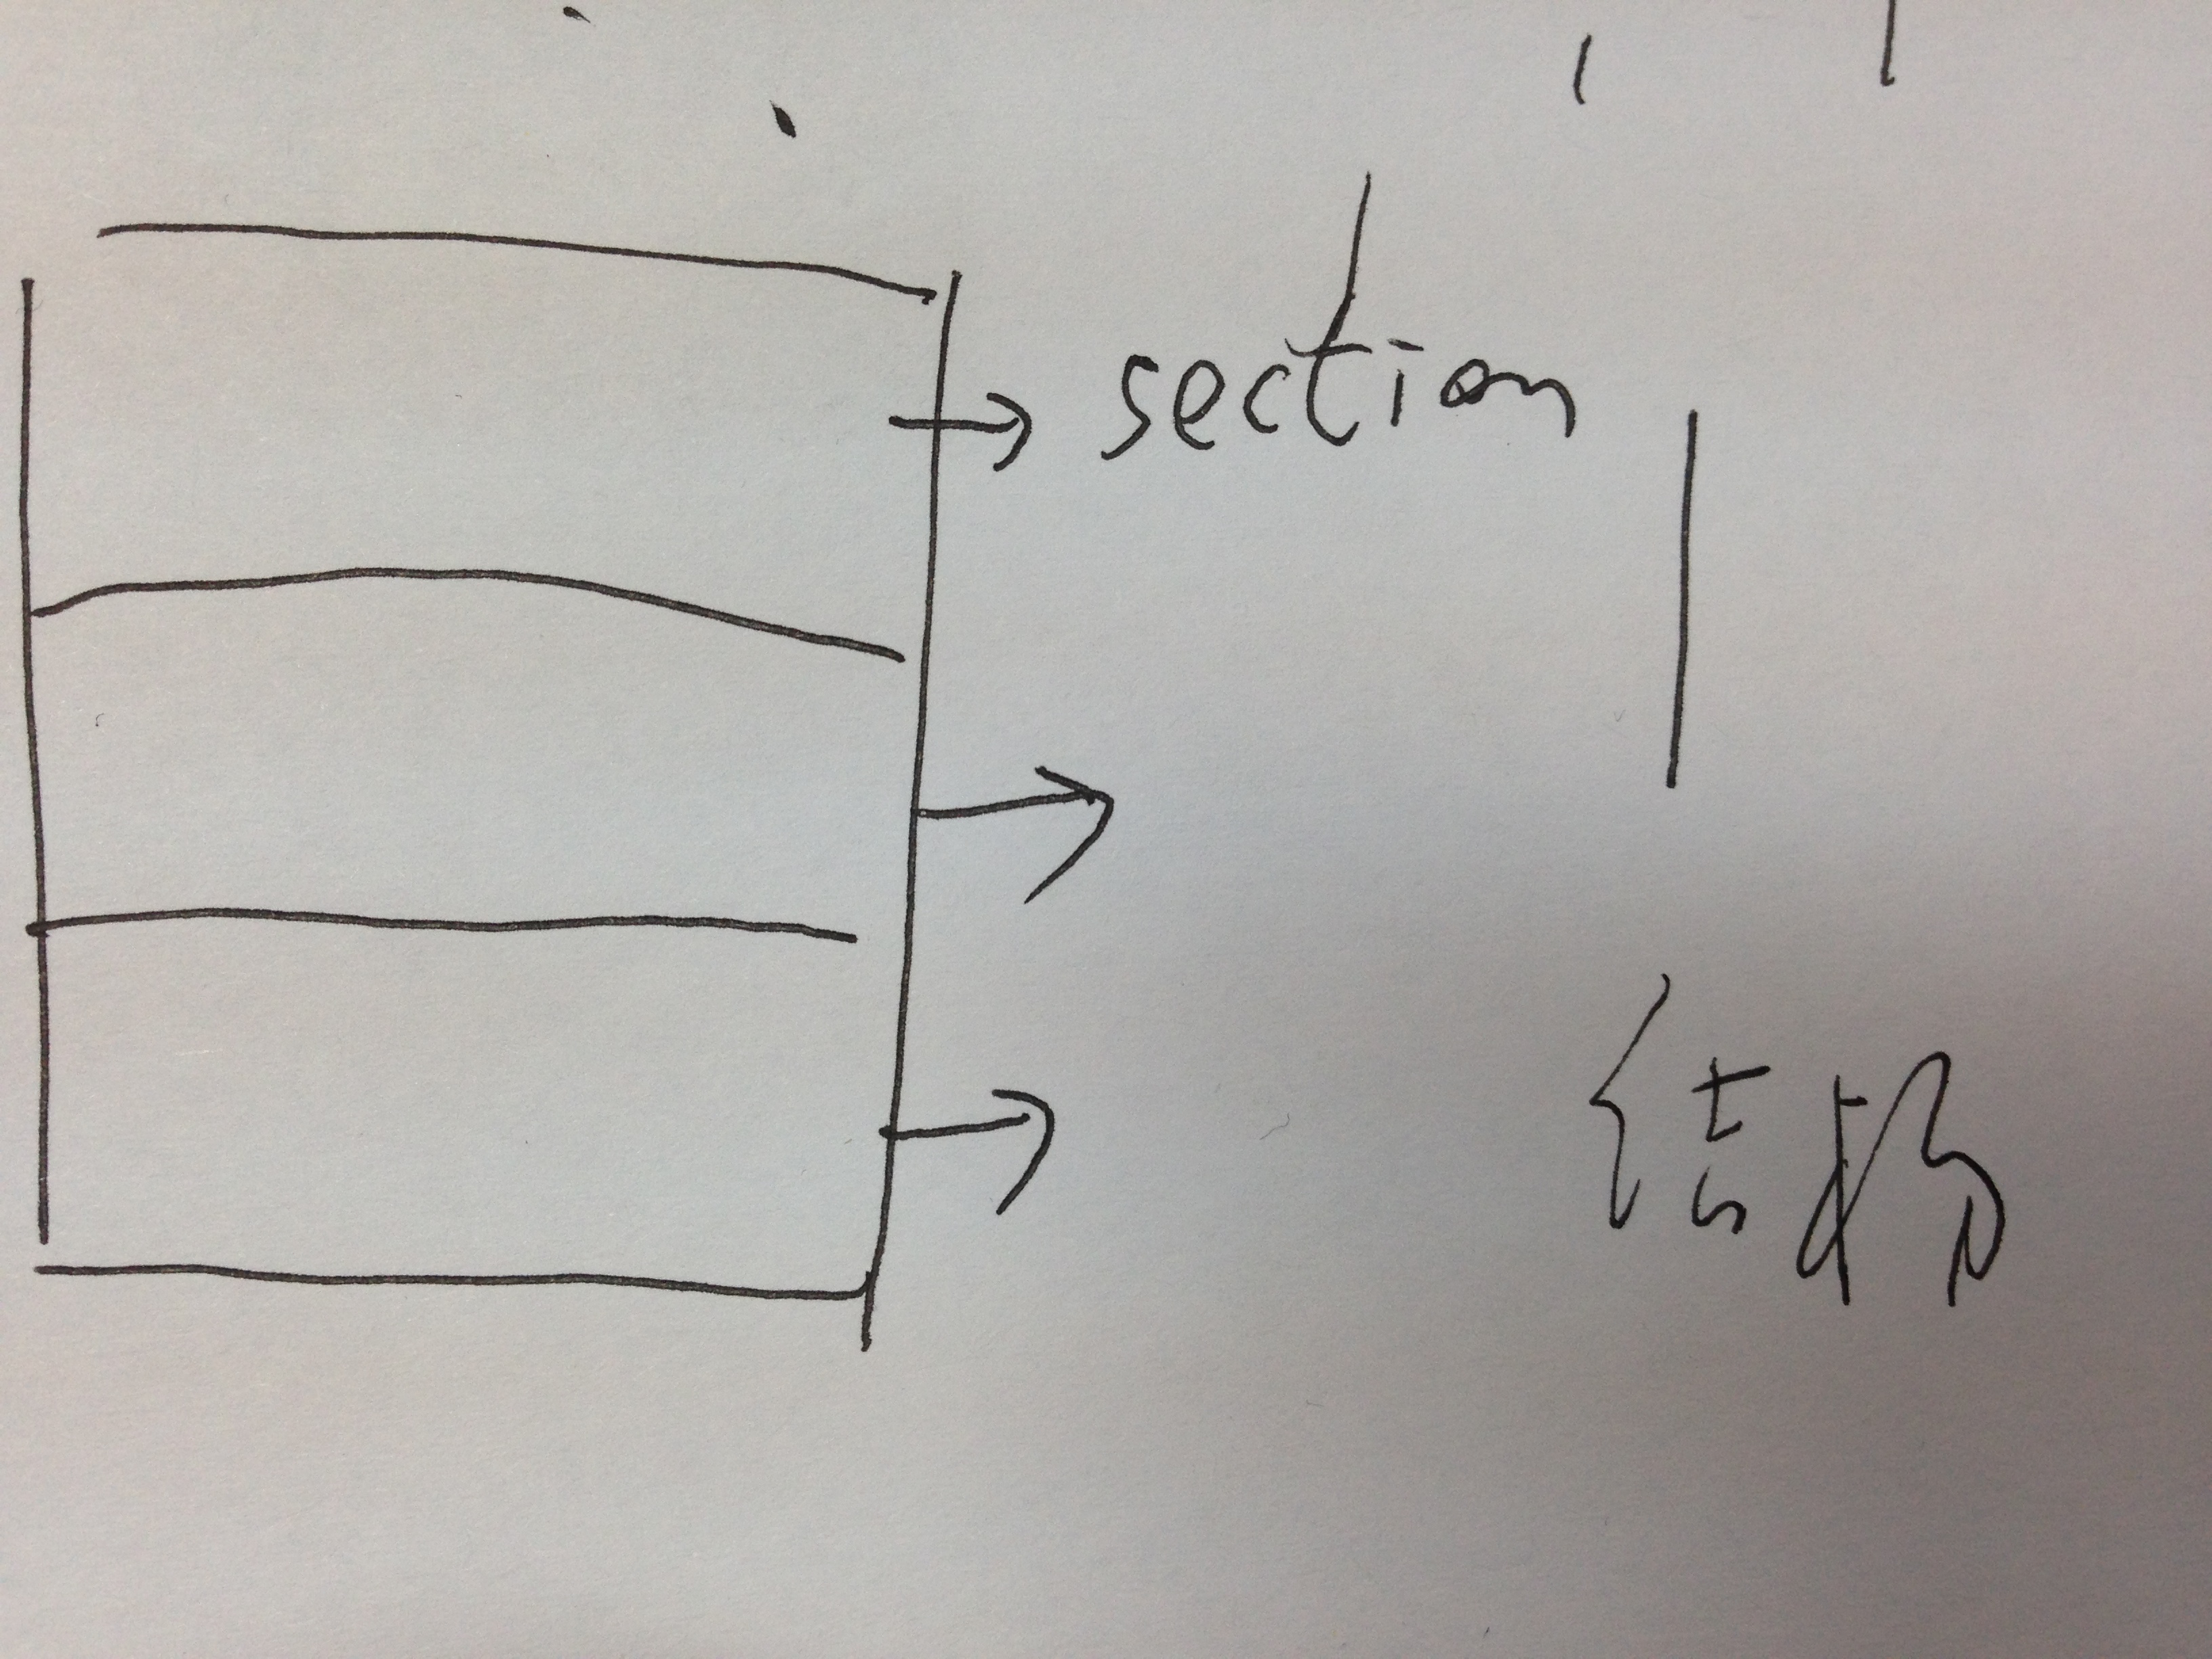 section
结构